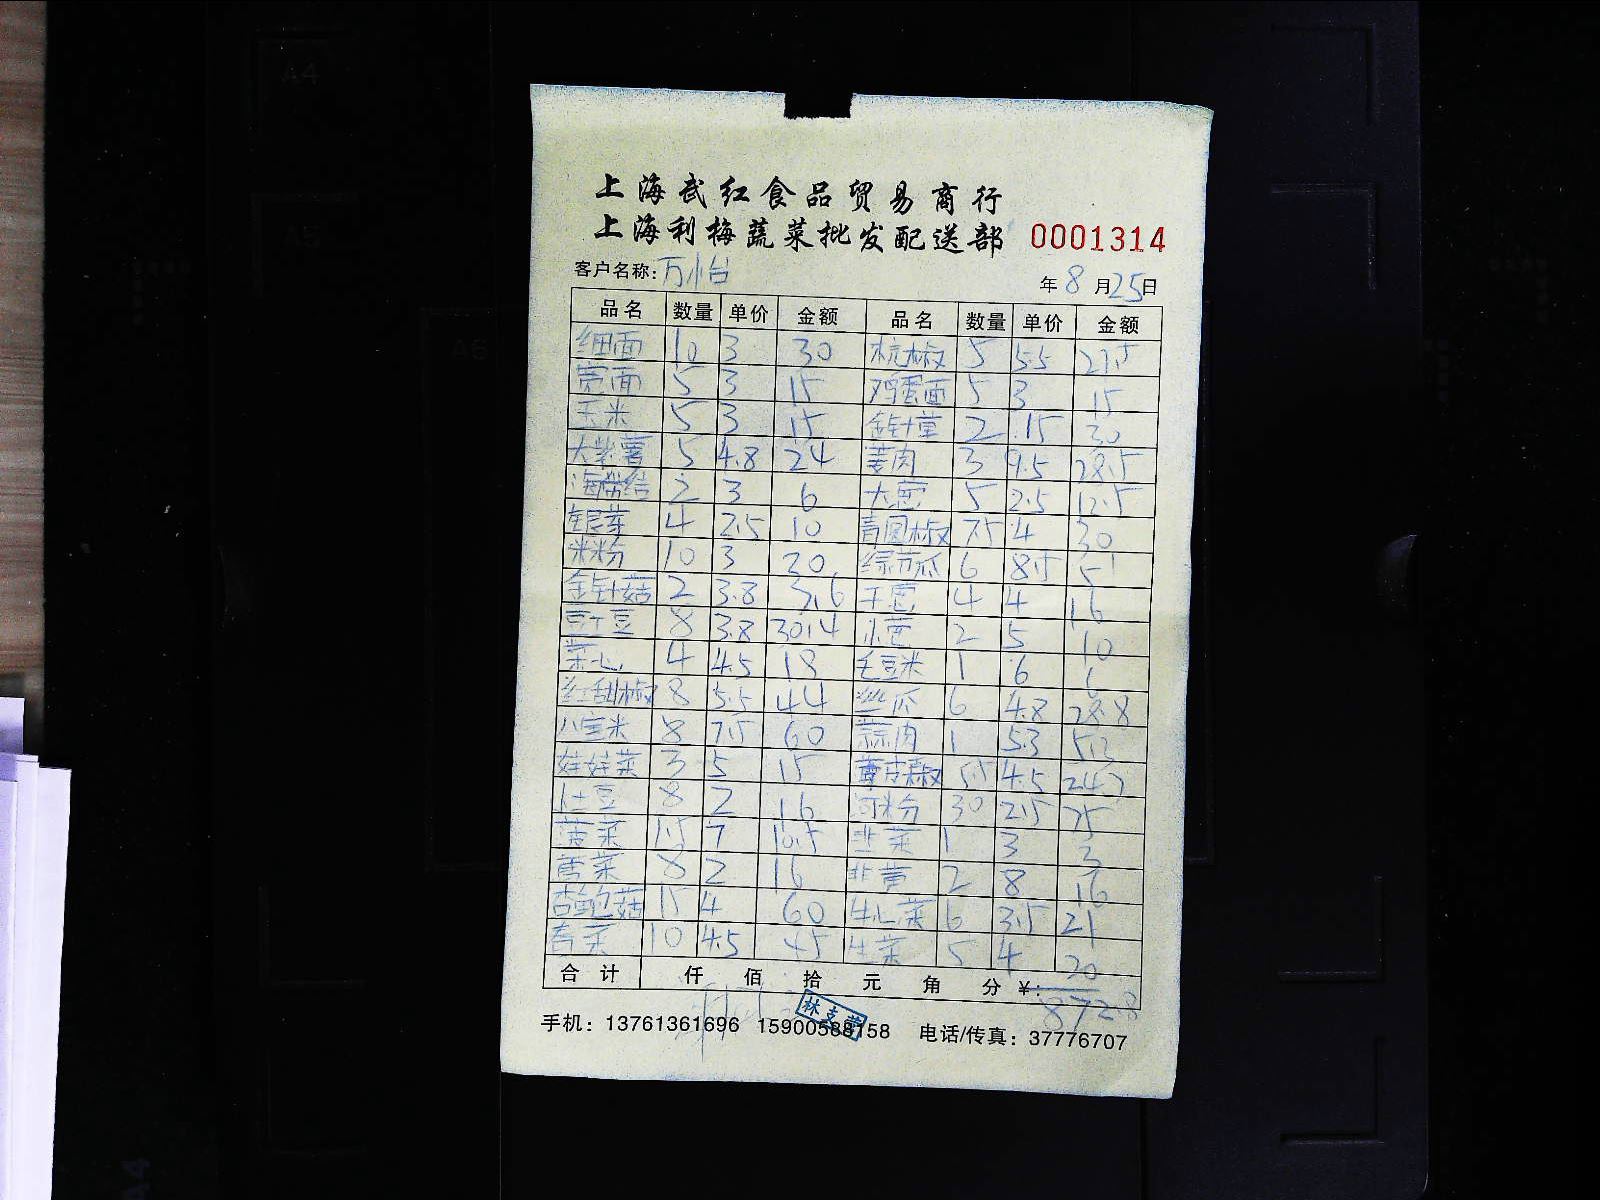 上海武红食品贸易商行
上海利梅蔬菜批发配送部 0001314
客户名称: 万怡 年 8 月 25 日
品名 数量 单价 金额 品名 数量 单价 金额
细面 10 3 30 杭椒 5 5.5 27.5
宽面 5 3 15 鸡蛋面 5 3 15
玉米 5 3 15 金针 2 15 30
大紫薯 5 4.8 24 姜肉 3 9.5 28.5
海带结 2 3 6 大葱 5 2.5 12.5
银芽 4 2.5 10 青圆椒 7.5 4 30
米粉 10 3 30 绿苦瓜 6 8.5 51
金针菇 2 3.8 7.6 干葱 4 4 16
豆土豆 8 3.8 30.4 小葱 2 5 10
菜心 4 4.5 18 毛豆米 1 6 6
红甜椒 8 5.5 44 丝瓜 6 4.8 28.8
八宝米 8 7.5 60 蒜肉 1 5.3 5.3
娃娃菜 3 5 15 皮椒 5.5 4.5 24.7
土豆 8 2 16 河粉 30 2.5 75
菠菜 1.5 7 10.5 韭菜 1 3 3
8 2 16 韭黄 2 8 16
杏鲍菇 15 4 60 牛心菜 6 3.5 21
10 4.5 45 生菜 5 4 20
合计 仟 佰 拾 元 角 分 ¥: 872.8
林支
手机: 13761361696 15900588158 电话/传真: 37776707